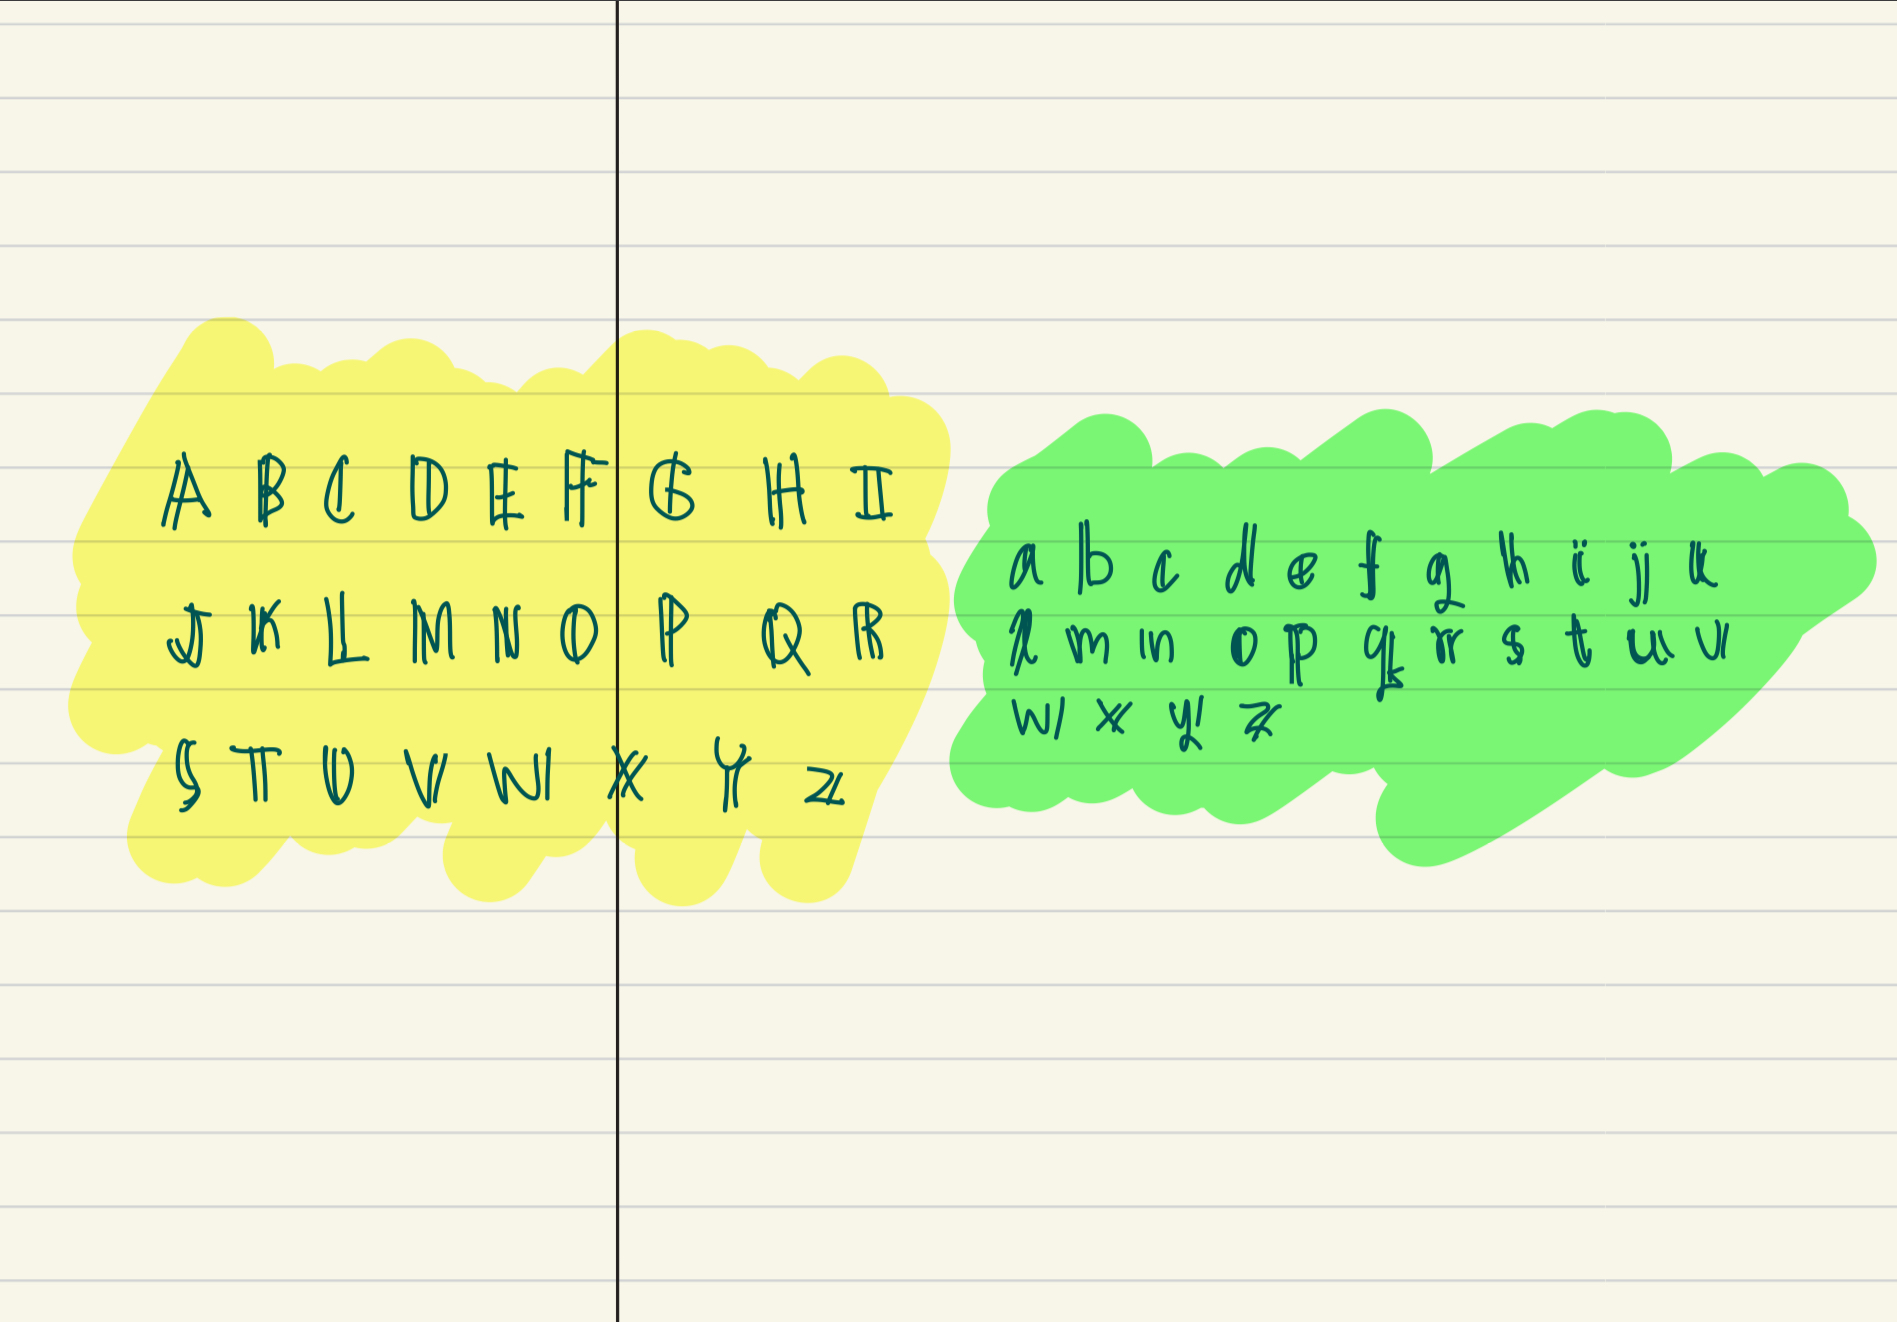 A B C D E F G H I
J K L M N O P Q R
S T U V W X Y Z
a b c d e f g h i j k
l m n o p q r s t u v
w x y z